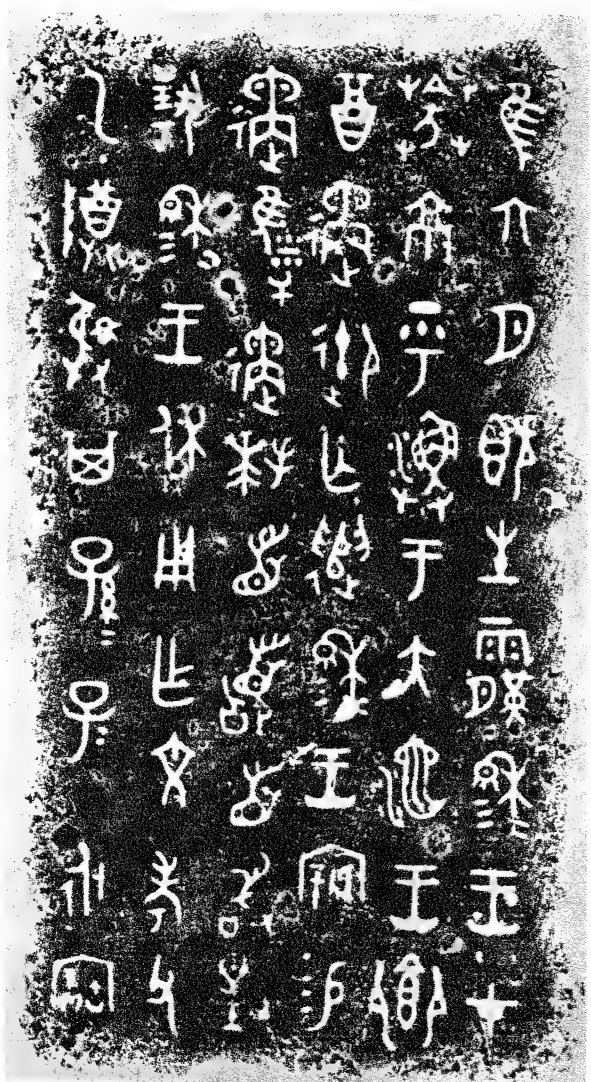 隹六月既生霸穆=王才
京乎漁于大池王鄉
酉遹御亡遣穆=王寴易
遹遹拜首䭫首敢對
揚穆=王休用乍文考父
乙尊彝其孫=子=永寶